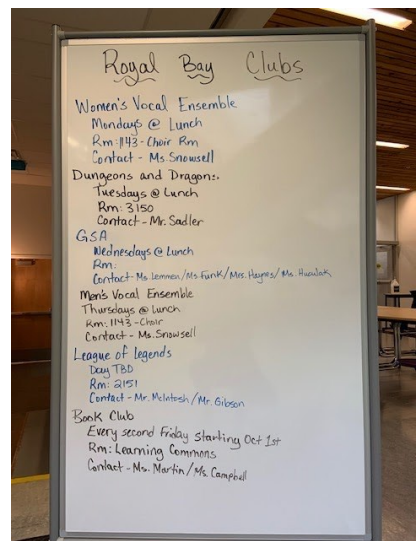 Royal Bay Clubs
Women's Vocal Ensemble
Mondays @ Lunch
Rm: 1143 - Choir Rm
Contact - Ms. Snowsell
Dungeons and Dragons:.
Tuesdays @ Lunch
Rm: 3150
Contact - Mr. Sadler
GSA
Wednesdays @ Lunch
Rm:
Contact - Ms. Lemmen / Ms. Funk / Mrs. Haynes / Ms.
Men's Vocal Ensemble
Thursdays @ Lunch
Rm: 1143 - Choir
Contact - Ms. Snowsell
League of legends
Day TBD
Rm: 2151
Contact - Mr. McIntosh / Mr. Gibson
Book Club
Every second Friday starting Oct 1st
Rm: Learning Commons
Contact - Ms. Martin / Ms. Campbell